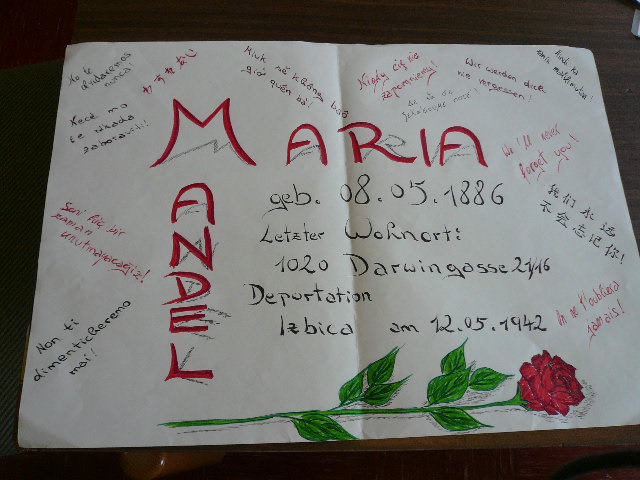 No te
olvidaremos
nunca!
sẽ không bao
giờ quên bà!
Nigdy cię nie
zapomnimy!
Wir werden dich
nie vergessen!
Neće mo
te nikada
zaboraviti!
MARIA
MANDEL
We'll never
forget you!
geb. 08.05.1886
Letzter Wohnort:
1020 Darwingasse 21/16
Deportation
Izbica am 12.05.1942
我们永远
不会忘记你!
Seni hiç bir
zaman
unutmayacağız!
On ne t'oubliera
jamais!
Non ti
dimenticheremo
mai!